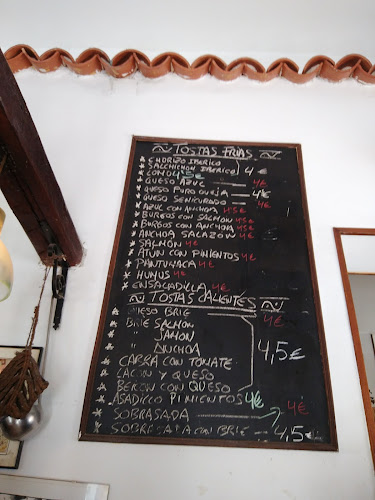 TOSTAS FRIAS
* CHORIZO IBERICO
* SALCHICHON IBERICO 4€
* LOMO
* QUESO AZUL — 4€
* QUESO PURO OVEJA — 4€
* QUESO SEMICURADO — 4€
* AZUL CON ANCHOA 4'5€
* BURGOS CON SALMON 4'5€
* BURGOS CON ANCHOA 4'5€
* ANCHOA SALAZON 4€
* SALMÓN 4€
* ATUN CON PIMIENTOS 4€
* 4€
* HUMUS 4€
* ENSALADILLA 4€
TOSTAS CALIENTES
* QUESO BRIE 4€
* BRIE SALMON
* " JAMON
* " ANCHOA 4,5€
* CABRA CON TOMATE
* LACON Y QUESO
* BEKON CON QUESO
* ASADILLO PIMIENTOS 4€
* SOBRASADA 4€
* SOBRASADA CON BRIE — 4,5€